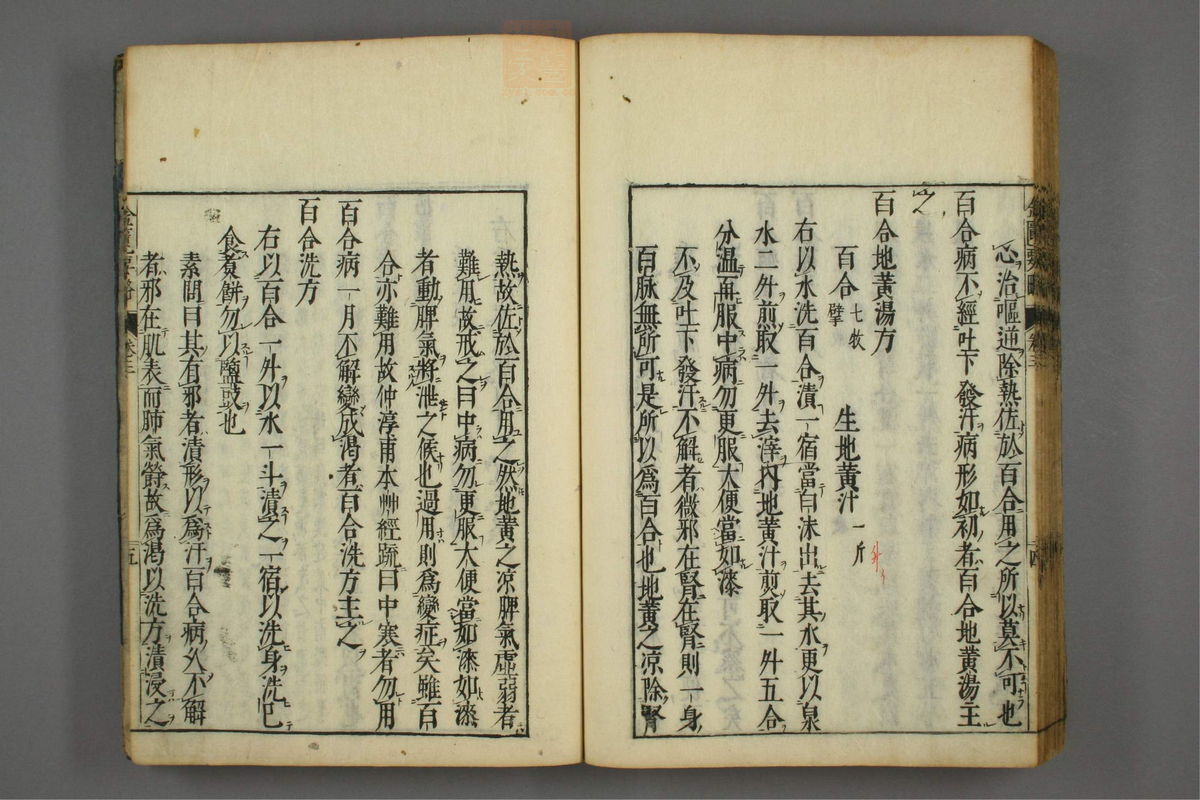 心治嘔逆除熱佐於百合用之所以莫不可也
百合病不經吐下發汗病形如初者百合地黃湯主
之
百合地黃湯方
百合 七枚 擘 生地黃汁 一斤
右以水洗百合漬一宿當白沫出去其水更以泉
水二升煎取一升去滓內地黃汁煎取一升五合
分温再服中病勿更服大便當如漆
不及吐下發汗不解者微邪在腎在腎則一身
百脉無所可是所以為百合也地黃之凉除腎
熱故佐於百合用之然地黃之凉脾氣虛弱者
難用故戒之曰中病勿更服大便當如漆如漆
者動脾氣將泄之候也過用則為變症矣雖百
合亦難用故仲淳甫本艸經疏曰中寒者勿用
百合病一月不解變成渴者百合洗方主之
百合洗方
右以百合一升以水一斗漬之一宿以洗身洗已
食煮餅勿以鹽豉也
素問曰其有邪者漬形以為汗百合病久不解
者邪在肌表而肺氣欝故為渴以洗方漬浸之